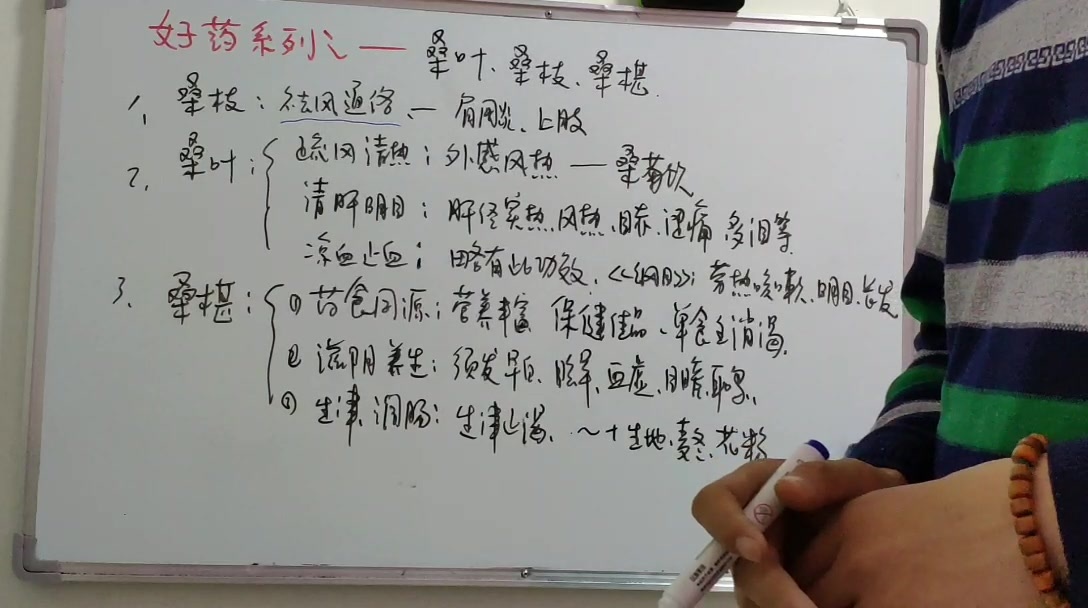 好药系列之一 桑叶、桑枝、桑椹
1、桑枝：祛风通络 — 肩周炎、上肢
2、桑叶：疏风清热：外感风热 — 桑菊饮
清肝明目：肝经实热、风热、目赤、涩痛 多泪等
凉血止血：略有此功效，《纲目》：劳热咳嗽、明目、长发
3、桑椹：① 药食同源：营养丰富 保健佳品、单食主消渴
② 滋阴养生：须发早白、眩晕、血虚、目暗、耳鸣、
③ 生津润肠：生津止渴、～＋生地、麦冬、花粉